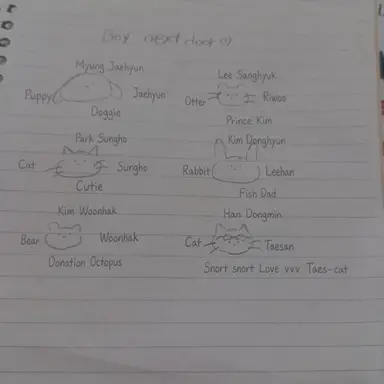 Boy next door
Myung Jaehyun
Puppy Jaehyun
Doggie
Lee Sanghyuk
Otter Riwoo
Prince Kim
Park Sungho
Cat Sungho
Cutie
Kim Donghyun
Rabbit Leehan
Fish Dad
Kim Woonhak
Bear Woonhak
Donation Octopus
Han Dongmin
Cat Taesan
Snort snort Love vvv Taes-cat